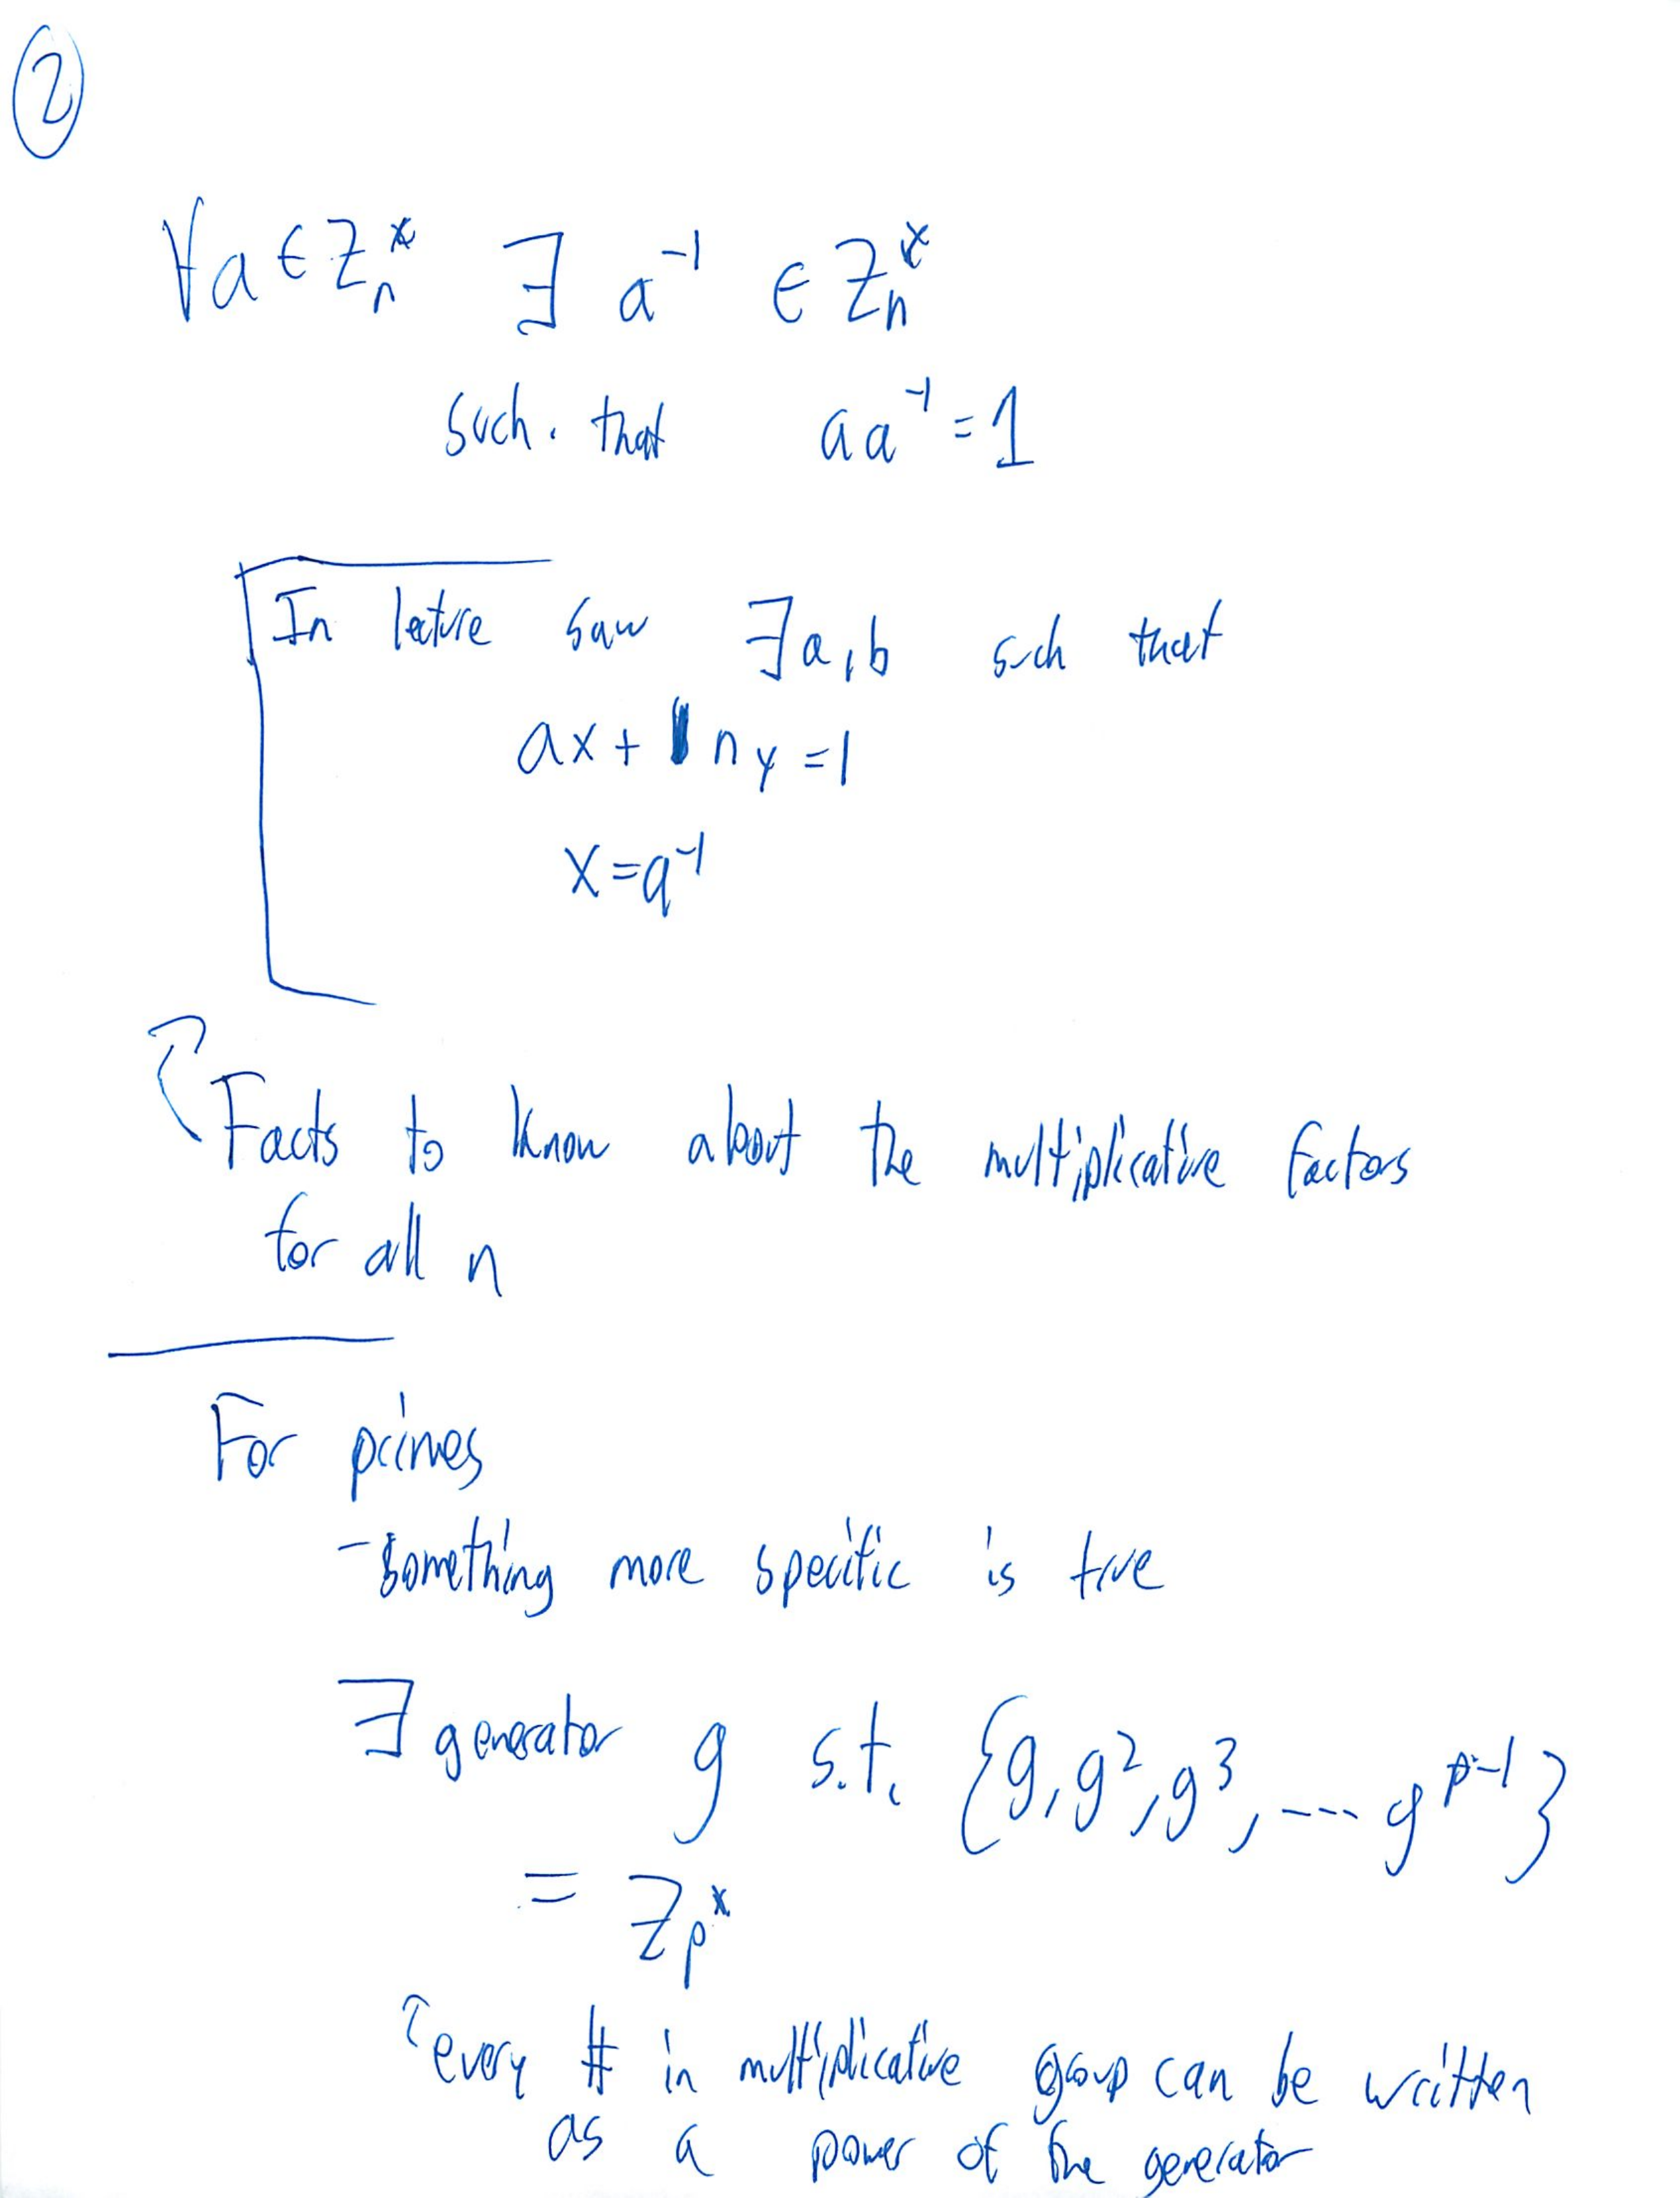 2
∀a ∈ Z_n^* ∃ a^-1 ∈ Z_n^*
such that aa^-1 = 1
In lecture saw ∃a,b such that
ax + ny = 1
x = a^-1
Facts to know about the multiplicative factors
for all n
For primes
- something more specific is true
∃ generator g s.t. {g, g^2, g^3, ... g^p-1}
= Z_p^*
every # in multiplicative group can be written
as a power of the generator